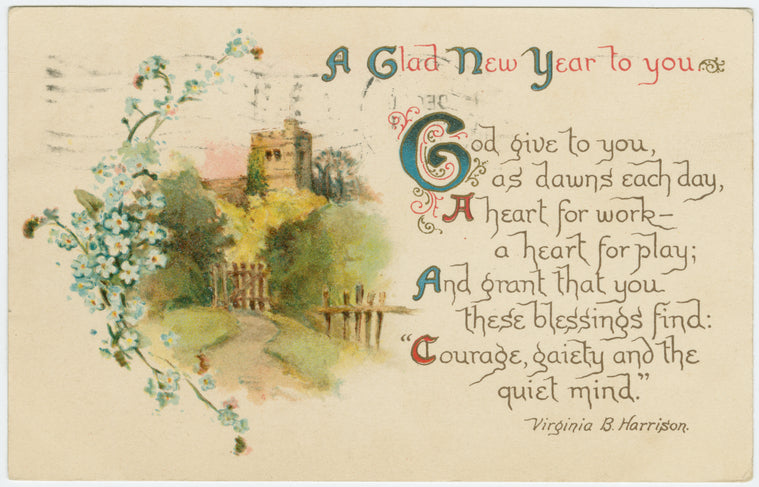 A Glad New Year to you
God give to you,
as dawns each day,
A heart for work—
a heart for play;
And grant that you
these blessings find:
"Courage, gaiety and the
quiet mind."
Virginia B. Harrison.